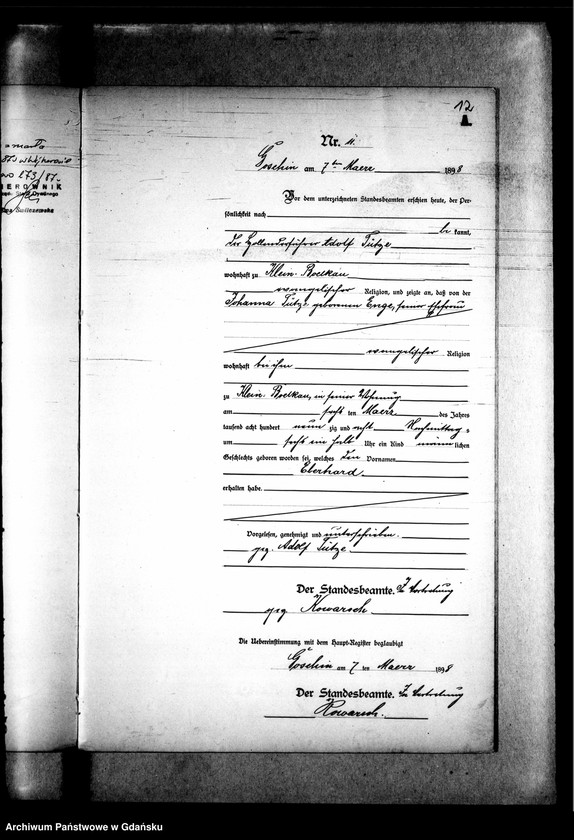 12
Nr. 11.
Goschin am 7ten Maerz 1898
Vor dem unterzeichneten Standesbeamten erschien heute, der Per-
sönlichkeit nach
be kannt,
der Adolf Tutze
wohnhaft zu Klein-Boelkau
evangelischer Religion, und zeigte an, daß von der
Johanna Tutze geborenen Enge, seiner Ehefrau
evangelischer Religion
wohnhaft bei ihm
zu Klein-Boelkau, in seiner Wohnung
am sechs ten Maerz des Jahres
tausend acht hundert neun zig und acht Nachmittag s
um sechs ein halb Uhr ein Kind männ lichen
Geschlechts geboren worden sei, welches den Vornamen
Eberhard
erhalten habe.
Vorgelesen, genehmigt und unterschrieben.
gez. Adolf Tutze
Der Standesbeamte. In Vertretung
gez Kowarsch
Die Uebereinstimmung mit dem Haupt-Register beglaubigt
Goschin am 7 ten Maerz 1898
Der Standesbeamte. In Vertretung
Kowarsch.
873/87.
KIEROWNIK
Archiwum Państwowe w Gdańsku